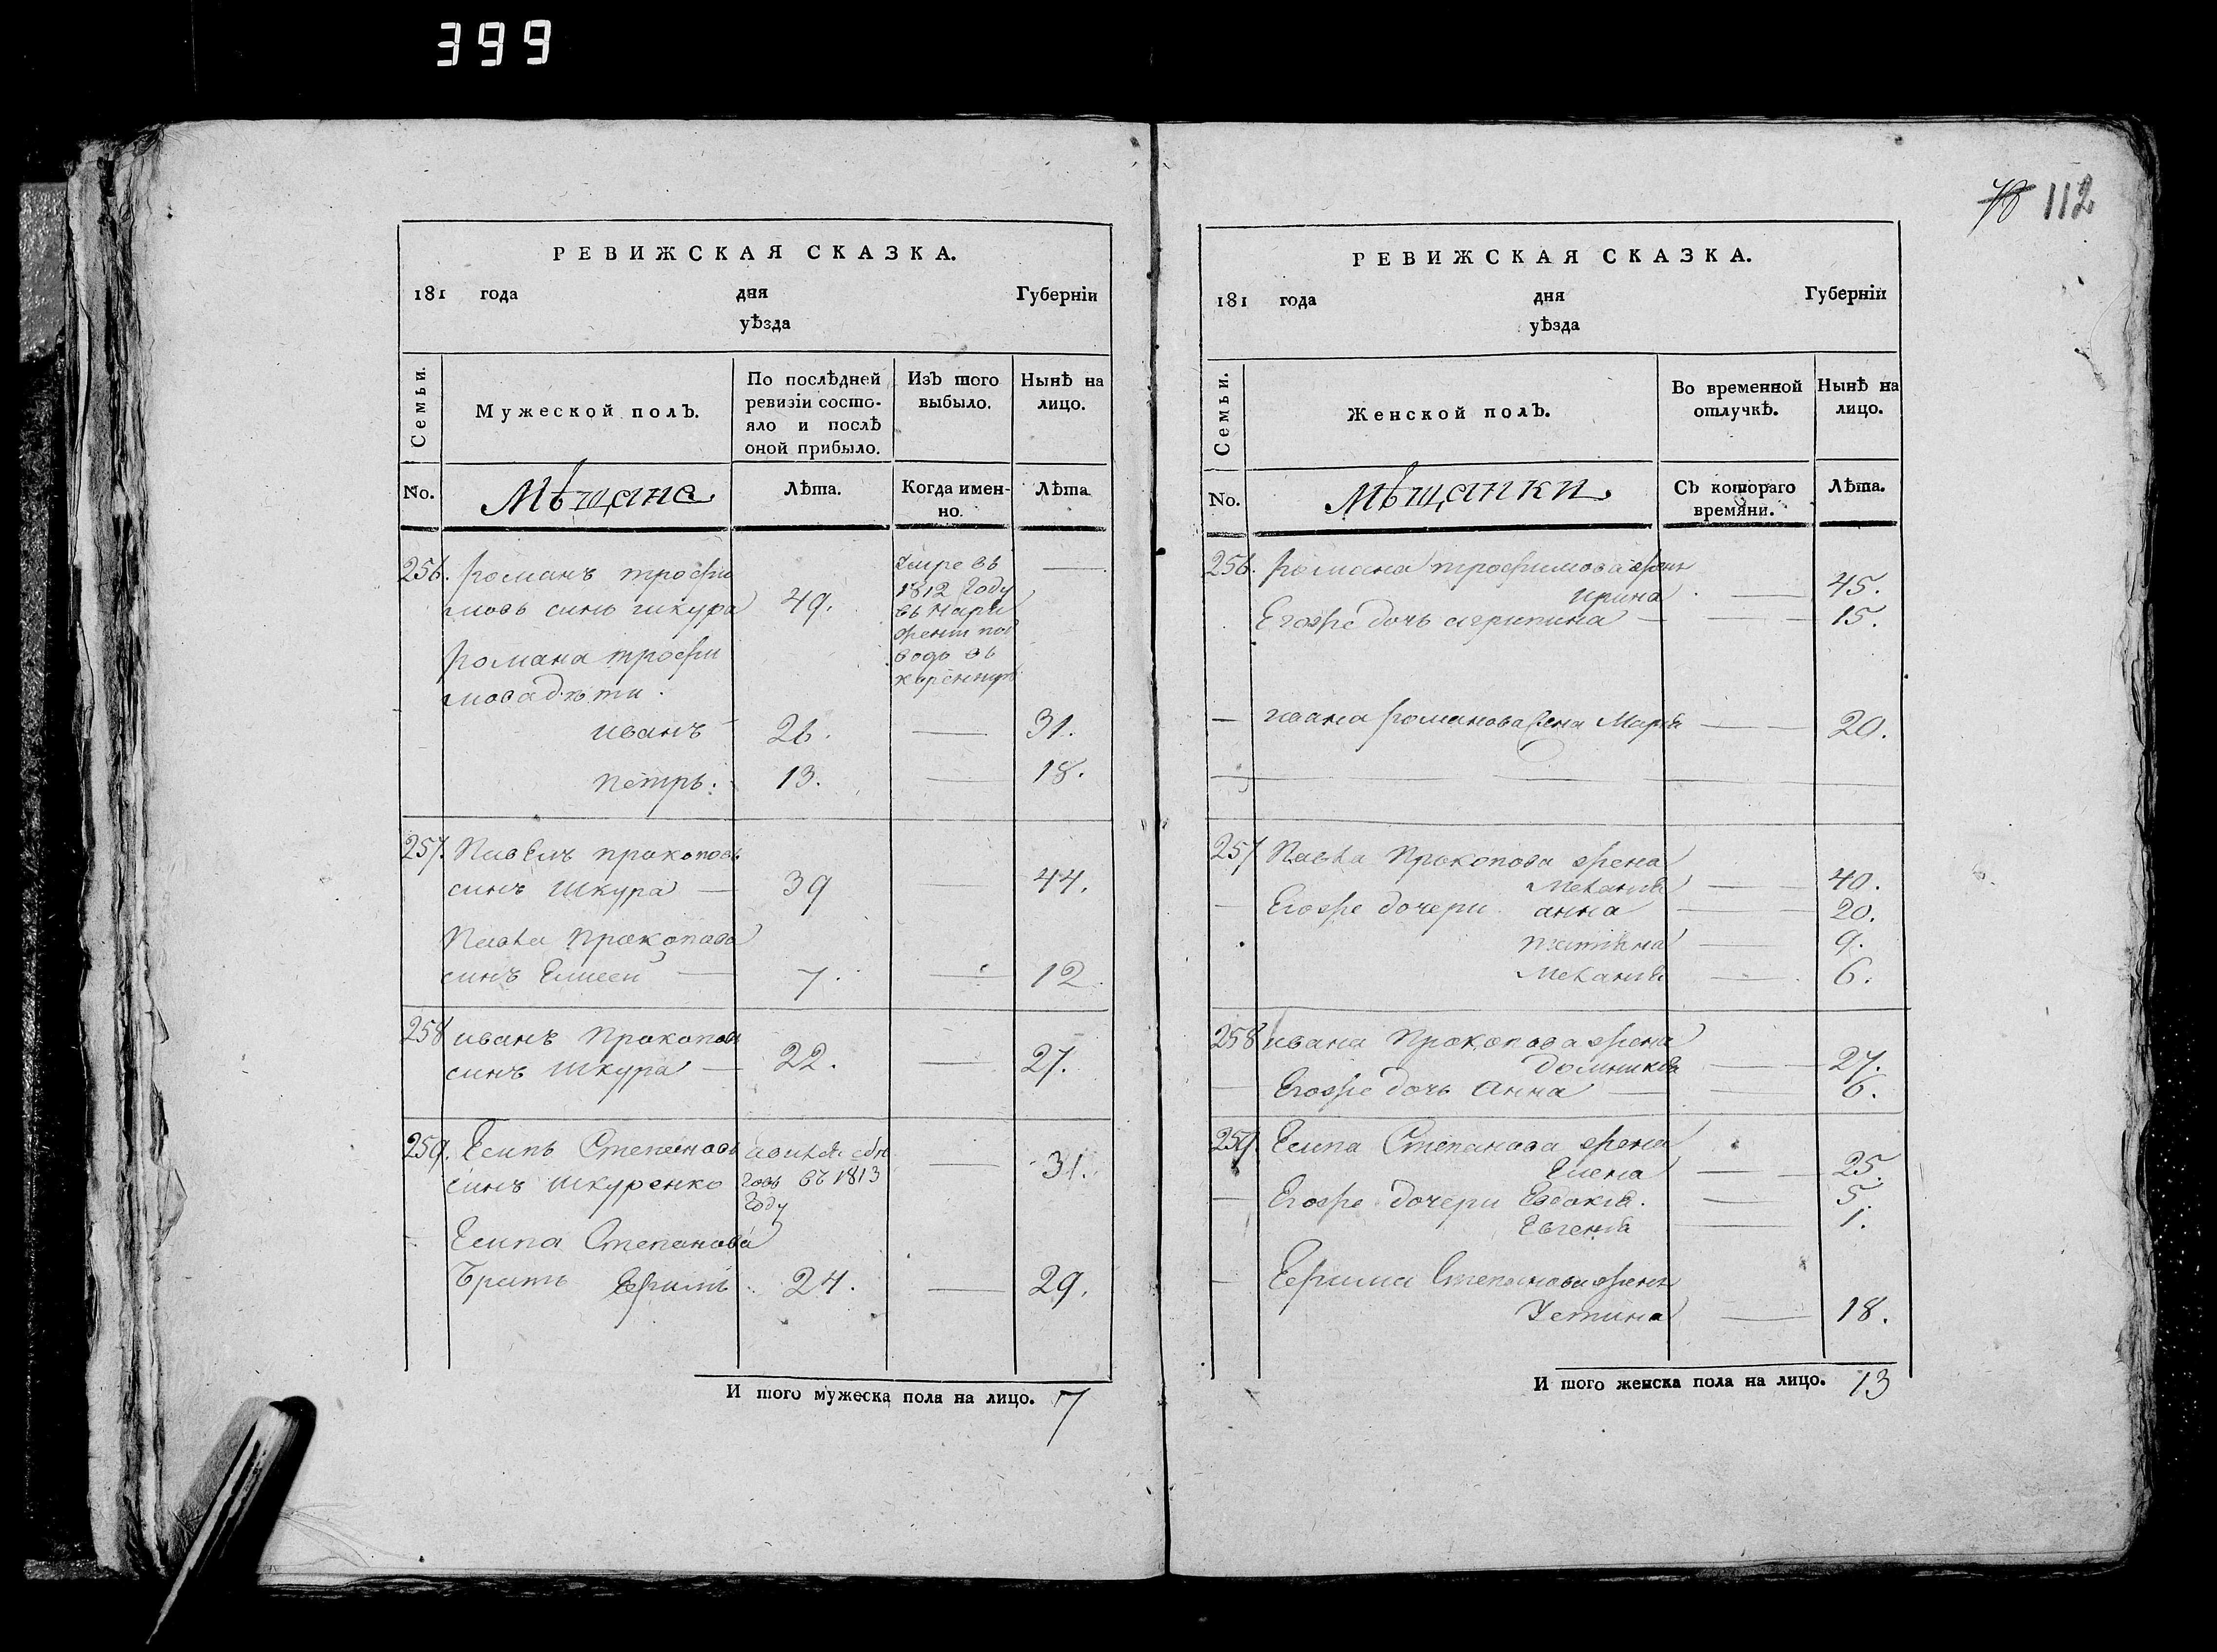 399
112
РЕВИЖСКАЯ СКАЗКА.
181 года дня Губерніи
уѣзда
Семьи.
Мужеской полЪ.
По послѣдней ревизіи состо-
яло и послѣ оной прибыло.
ИзЪ того выбыло.
Нынѣ на лицо.
No.
Мѣщане
Лѣта.
Когда имен-
но.
Лѣта
256. романъ трофи
мовъ синъ шкура 49.
умре въ
1812 году
въ
романа трофи
мова дѣти
иванъ 26. 31.
петръ. 13. 18.
257. Павелъ прокоповъ
синъ шкура 39 44.
Павла прокопова
синъ Елисей 7. 12
258 иванъ прокоповъ
синъ шкура 22. 27.
259. Есипъ Степановъ
синъ шкуренко въ 1813 31.
году
Есипа Степанова
братъ Ефимъ 24. 29.
И того мужеска пола на лицо. 7
РЕВИЖСКАЯ СКАЗКА.
181 года дня Губерніи
уѣзда
Семьи.
Женской полЪ.
Во временной отлучкѣ.
Нынѣ на лицо.
No.
Мѣщанки.
СЪ котораго времяни.
Лѣта.
256. романа трофимова жена
ирина 45.
Егоже дочь агрипина 15.
ивана романова жена Марія 20.
257 Павла Прокопова жена
Меланія 40.
Егоже дочери анна 20.
татіана 9.
Меланія 6.
258 ивана Прокопова жена
Домникія 27.
Егоже дочь анна 6.
259. Есипа Степанова жена
Елена 25.
Егоже дочери Евдокія. 5.
Евгенія 1.
Ефима Степанова жена
Устина 18.
И того женска пола на лицо. 13